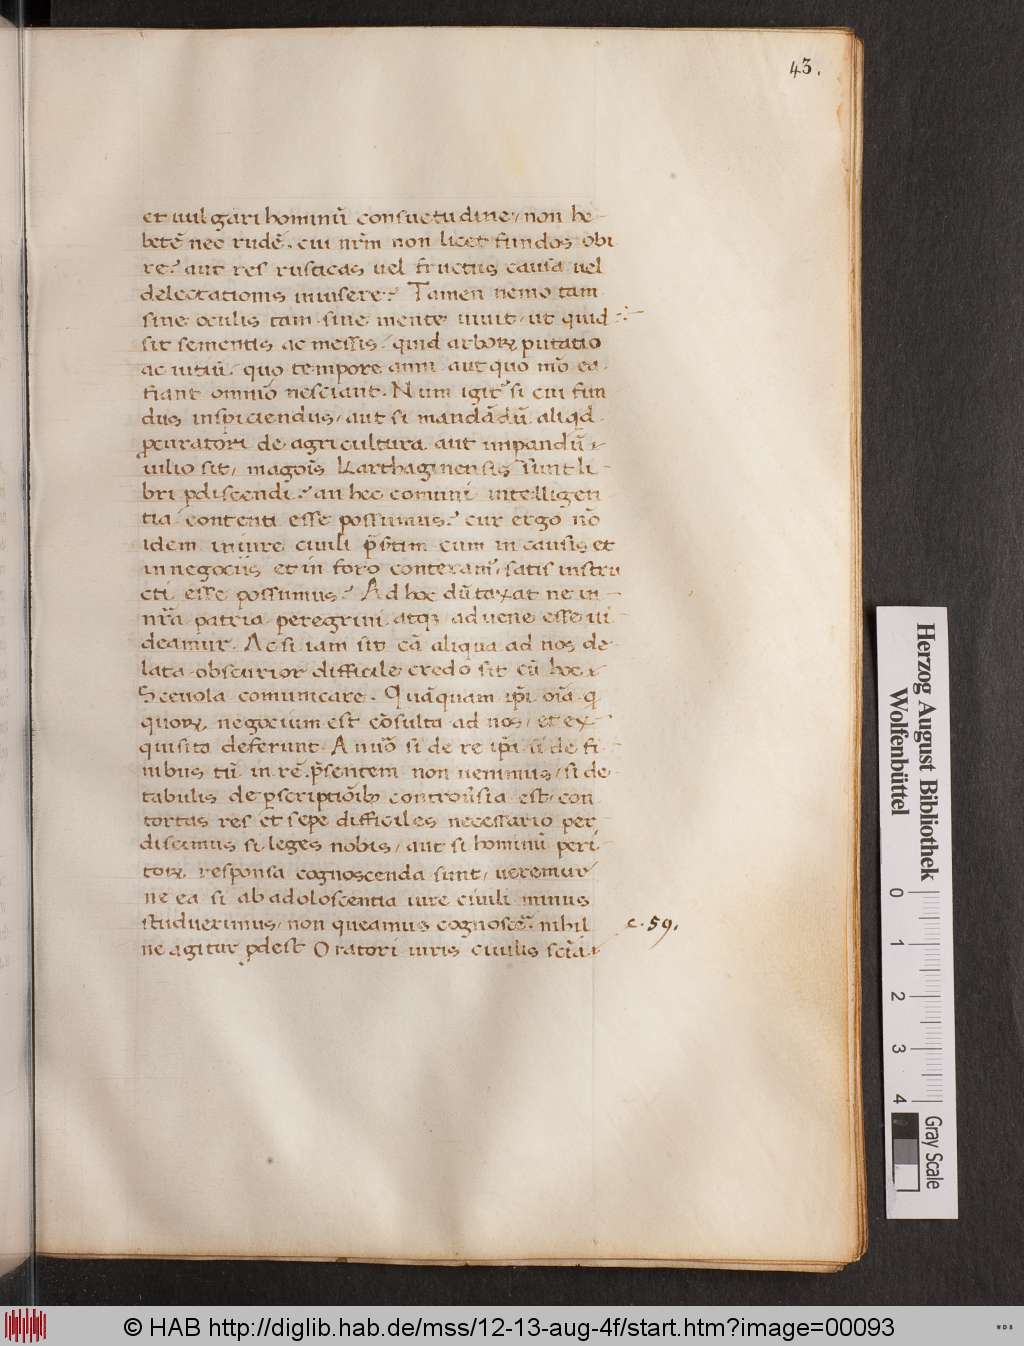 43.
et uulgari hominū consuetudine, non he-
betē nec rudē. cui nr̄m non licet fundos obi
re? aut res rusticas uel fructus causa uel
delectationis inuisere? Tamen nemo tam
sine oculis tam sine mente uiuit, ut quid
sit sementis ac messis, quid arboꝝ putatio
ac uitiū, quo tempore anni aut quo mō ea
fiant omnīo nesciant. Num igit᷑ si cui fun
dus inspiciendus, aut si mandādū aliqd
ꝓcuratori de agricultura aut impandū
uilio sit, magonis Karthaginensis sunt li-
bri pdiscendi? an hec comuni intelligen
tia contenti esse possumus? cur ergo nō
idem in iure ciuili p̄sertim cum in causis et
in negociis et in foro conteram᷑, satis instru
cti esse possumus? Ad hoc dūtaxat ne in
nr̄a patria peregrini atqꝫ aduene esse ui
deamur. Ac si iam sit cā aliqua ad nos de-
lata obscurior difficile credo sit cū hoc
Sceuola comunicare. Quāquam ip̄i oīa q
quoꝝ negocium est cōsulta ad nos, et ex-
quisita deferunt. A nuō si de re ip̄a si de fi-
nibus cū in rē p̄sentem non uenimus, si de
tabulis de ꝑscriptiōibꝫ controūsia est, con
tortas res et sepe difficiles necessario per
discimus si leges nobis, aut si hominū peri
toꝝ responsa cognoscenda sunt, ueremur
ne ea si ab adoloscentia iure ciuili minus
studuerimus, non queamus cognoscē. nihil
ne agitur ꝓdest Oratori iuris ciuilis sciā
c. 59.
Herzog August Bibliothek
Wolfenbüttel
0 1 2 3 4
Gray Scale
© HAB http://diglib.hab.de/mss/12-13-aug-4f/start.htm?image=00093